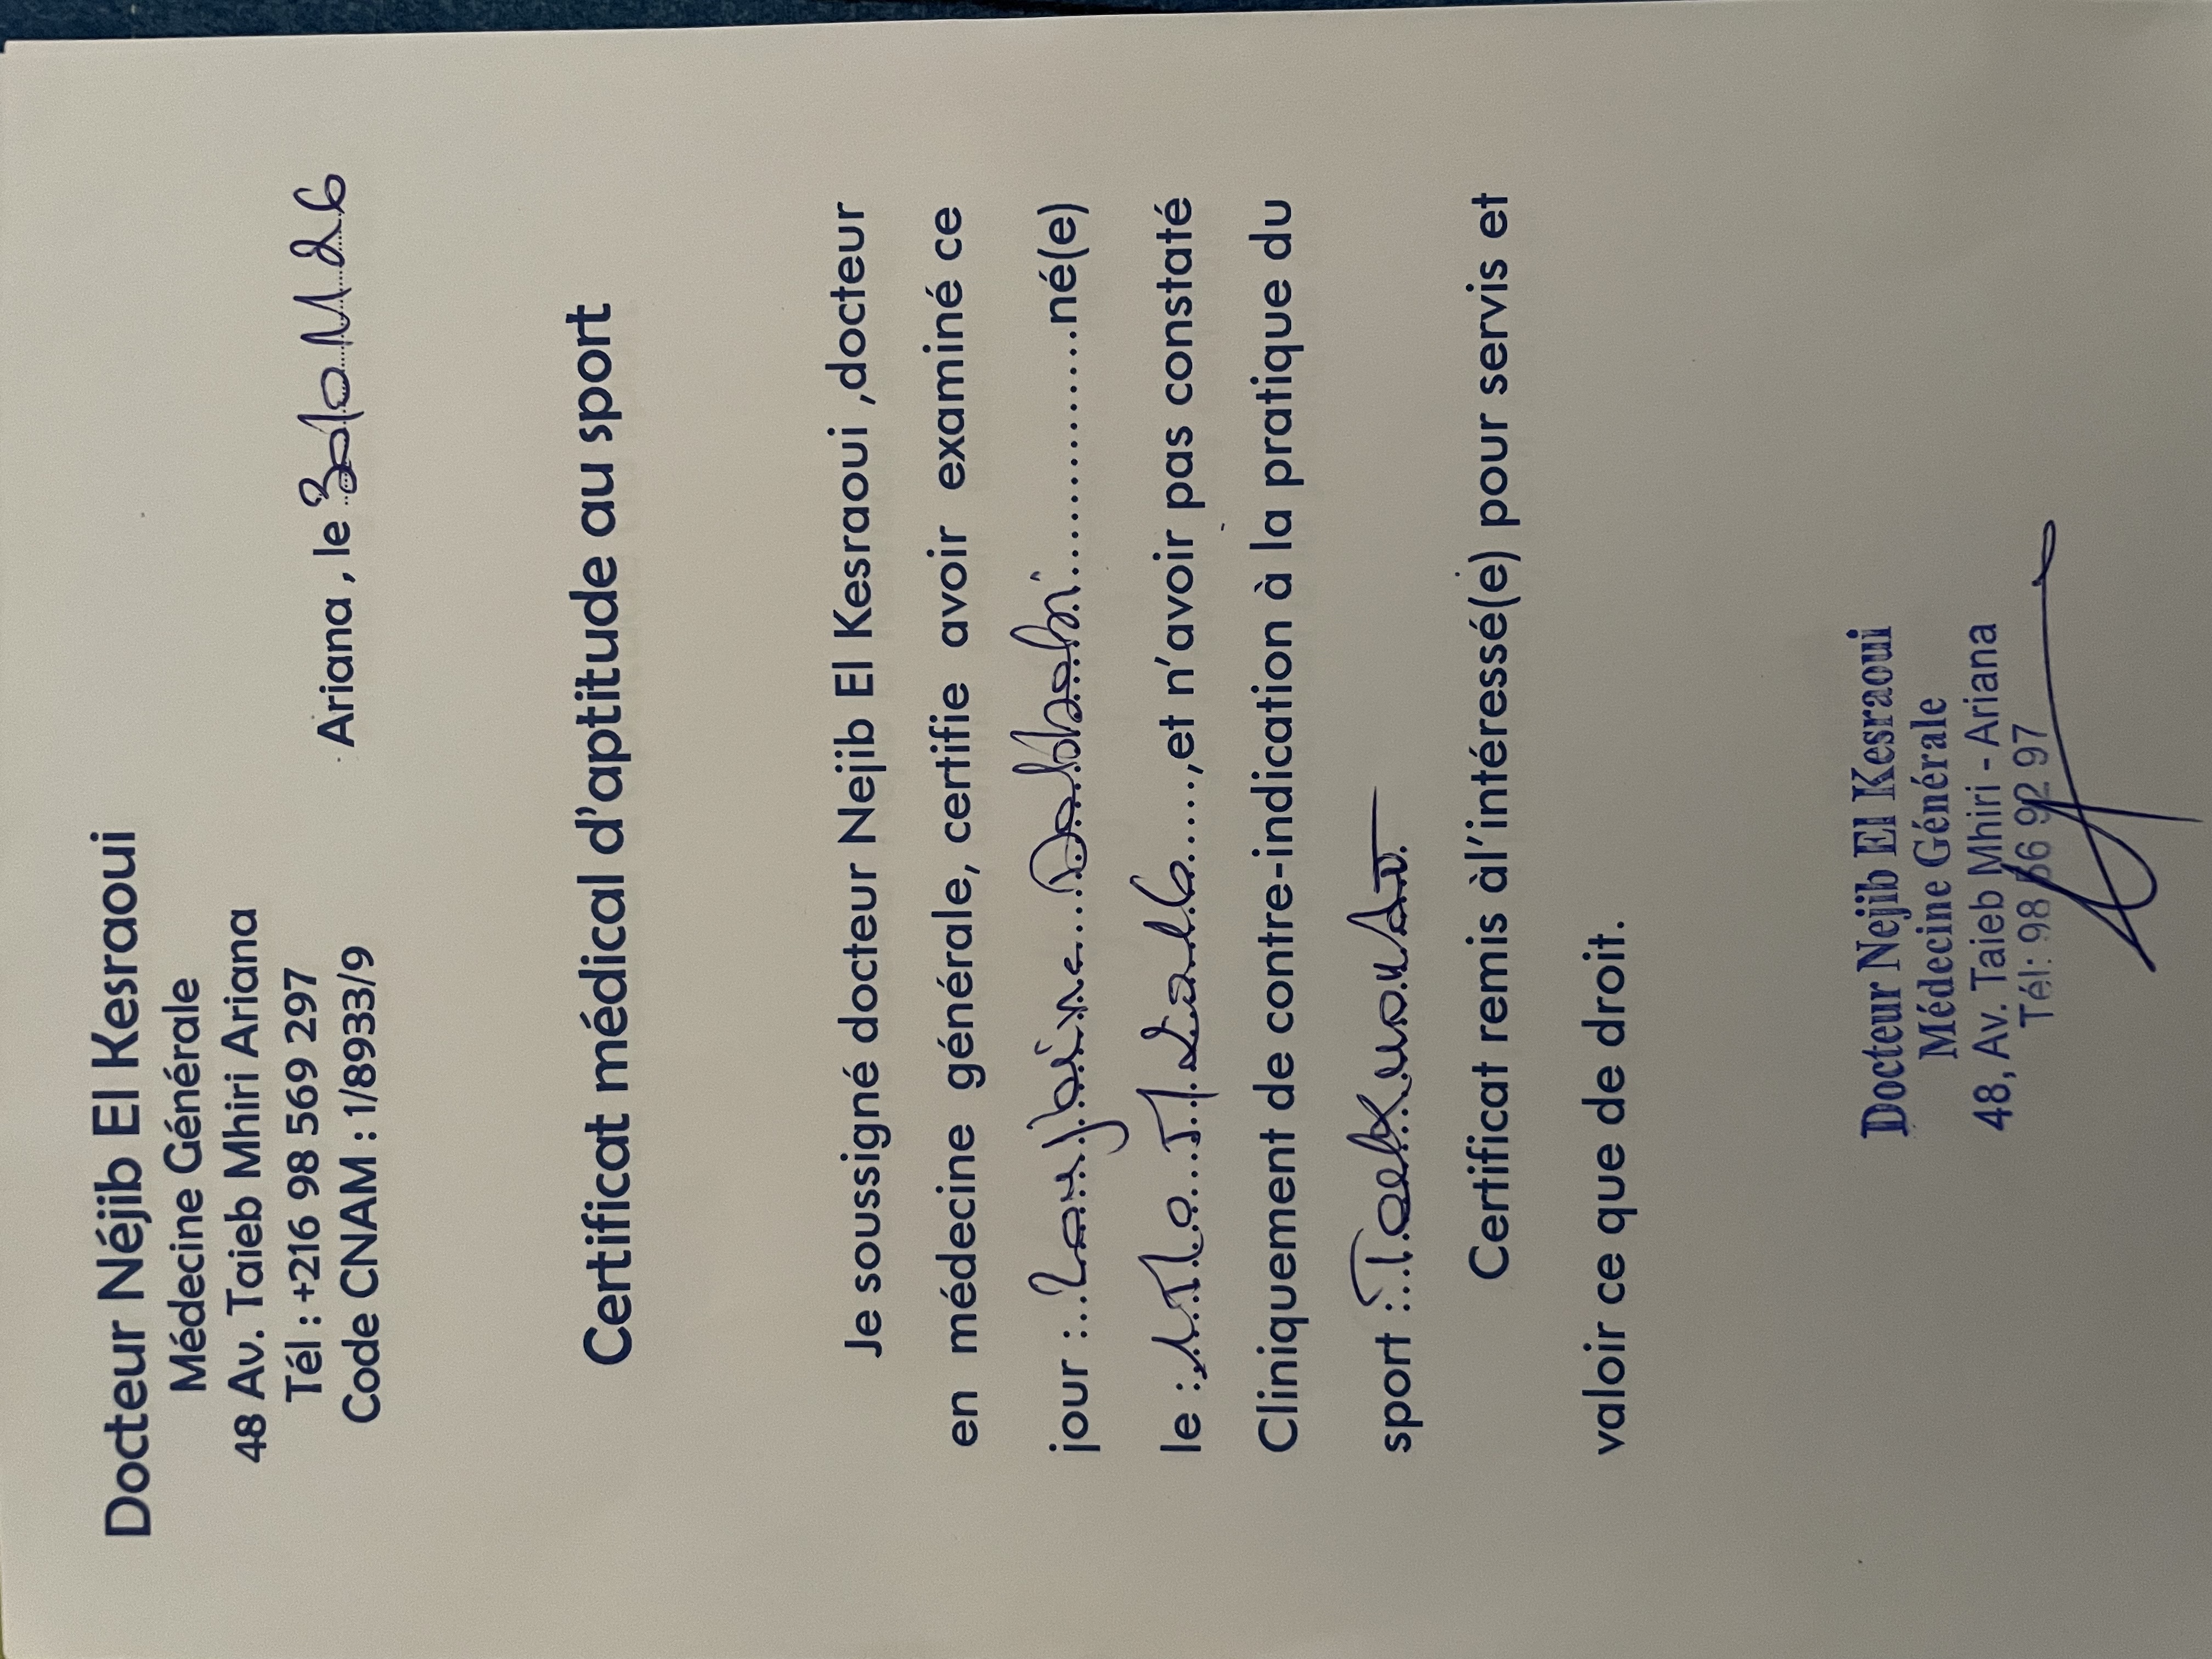 Docteur Néjib El Kesraoui
Médecine Générale
48 Av. Taieb Mhiri Ariana
Tél : +216 98 569 297
Code CNAM : 1/8933/9
Ariana , le
Certificat médical d'aptitude au sport
Je soussigné docteur Nejib El Kesraoui ,docteur
en médecine générale, certifie avoir examiné ce
jour :..............né(e)
le :......,et n'avoir pas constaté
Cliniquement de contre-indication à la pratique du
sport : Taekwondo
Certificat remis àl'intéressé(e) pour servis et
valoir ce que de droit.
Docteur Nejib El Kesraoui
Médecine Générale
48, Av. Taieb Mhiri - Ariana
Tél: 98 56 92 97